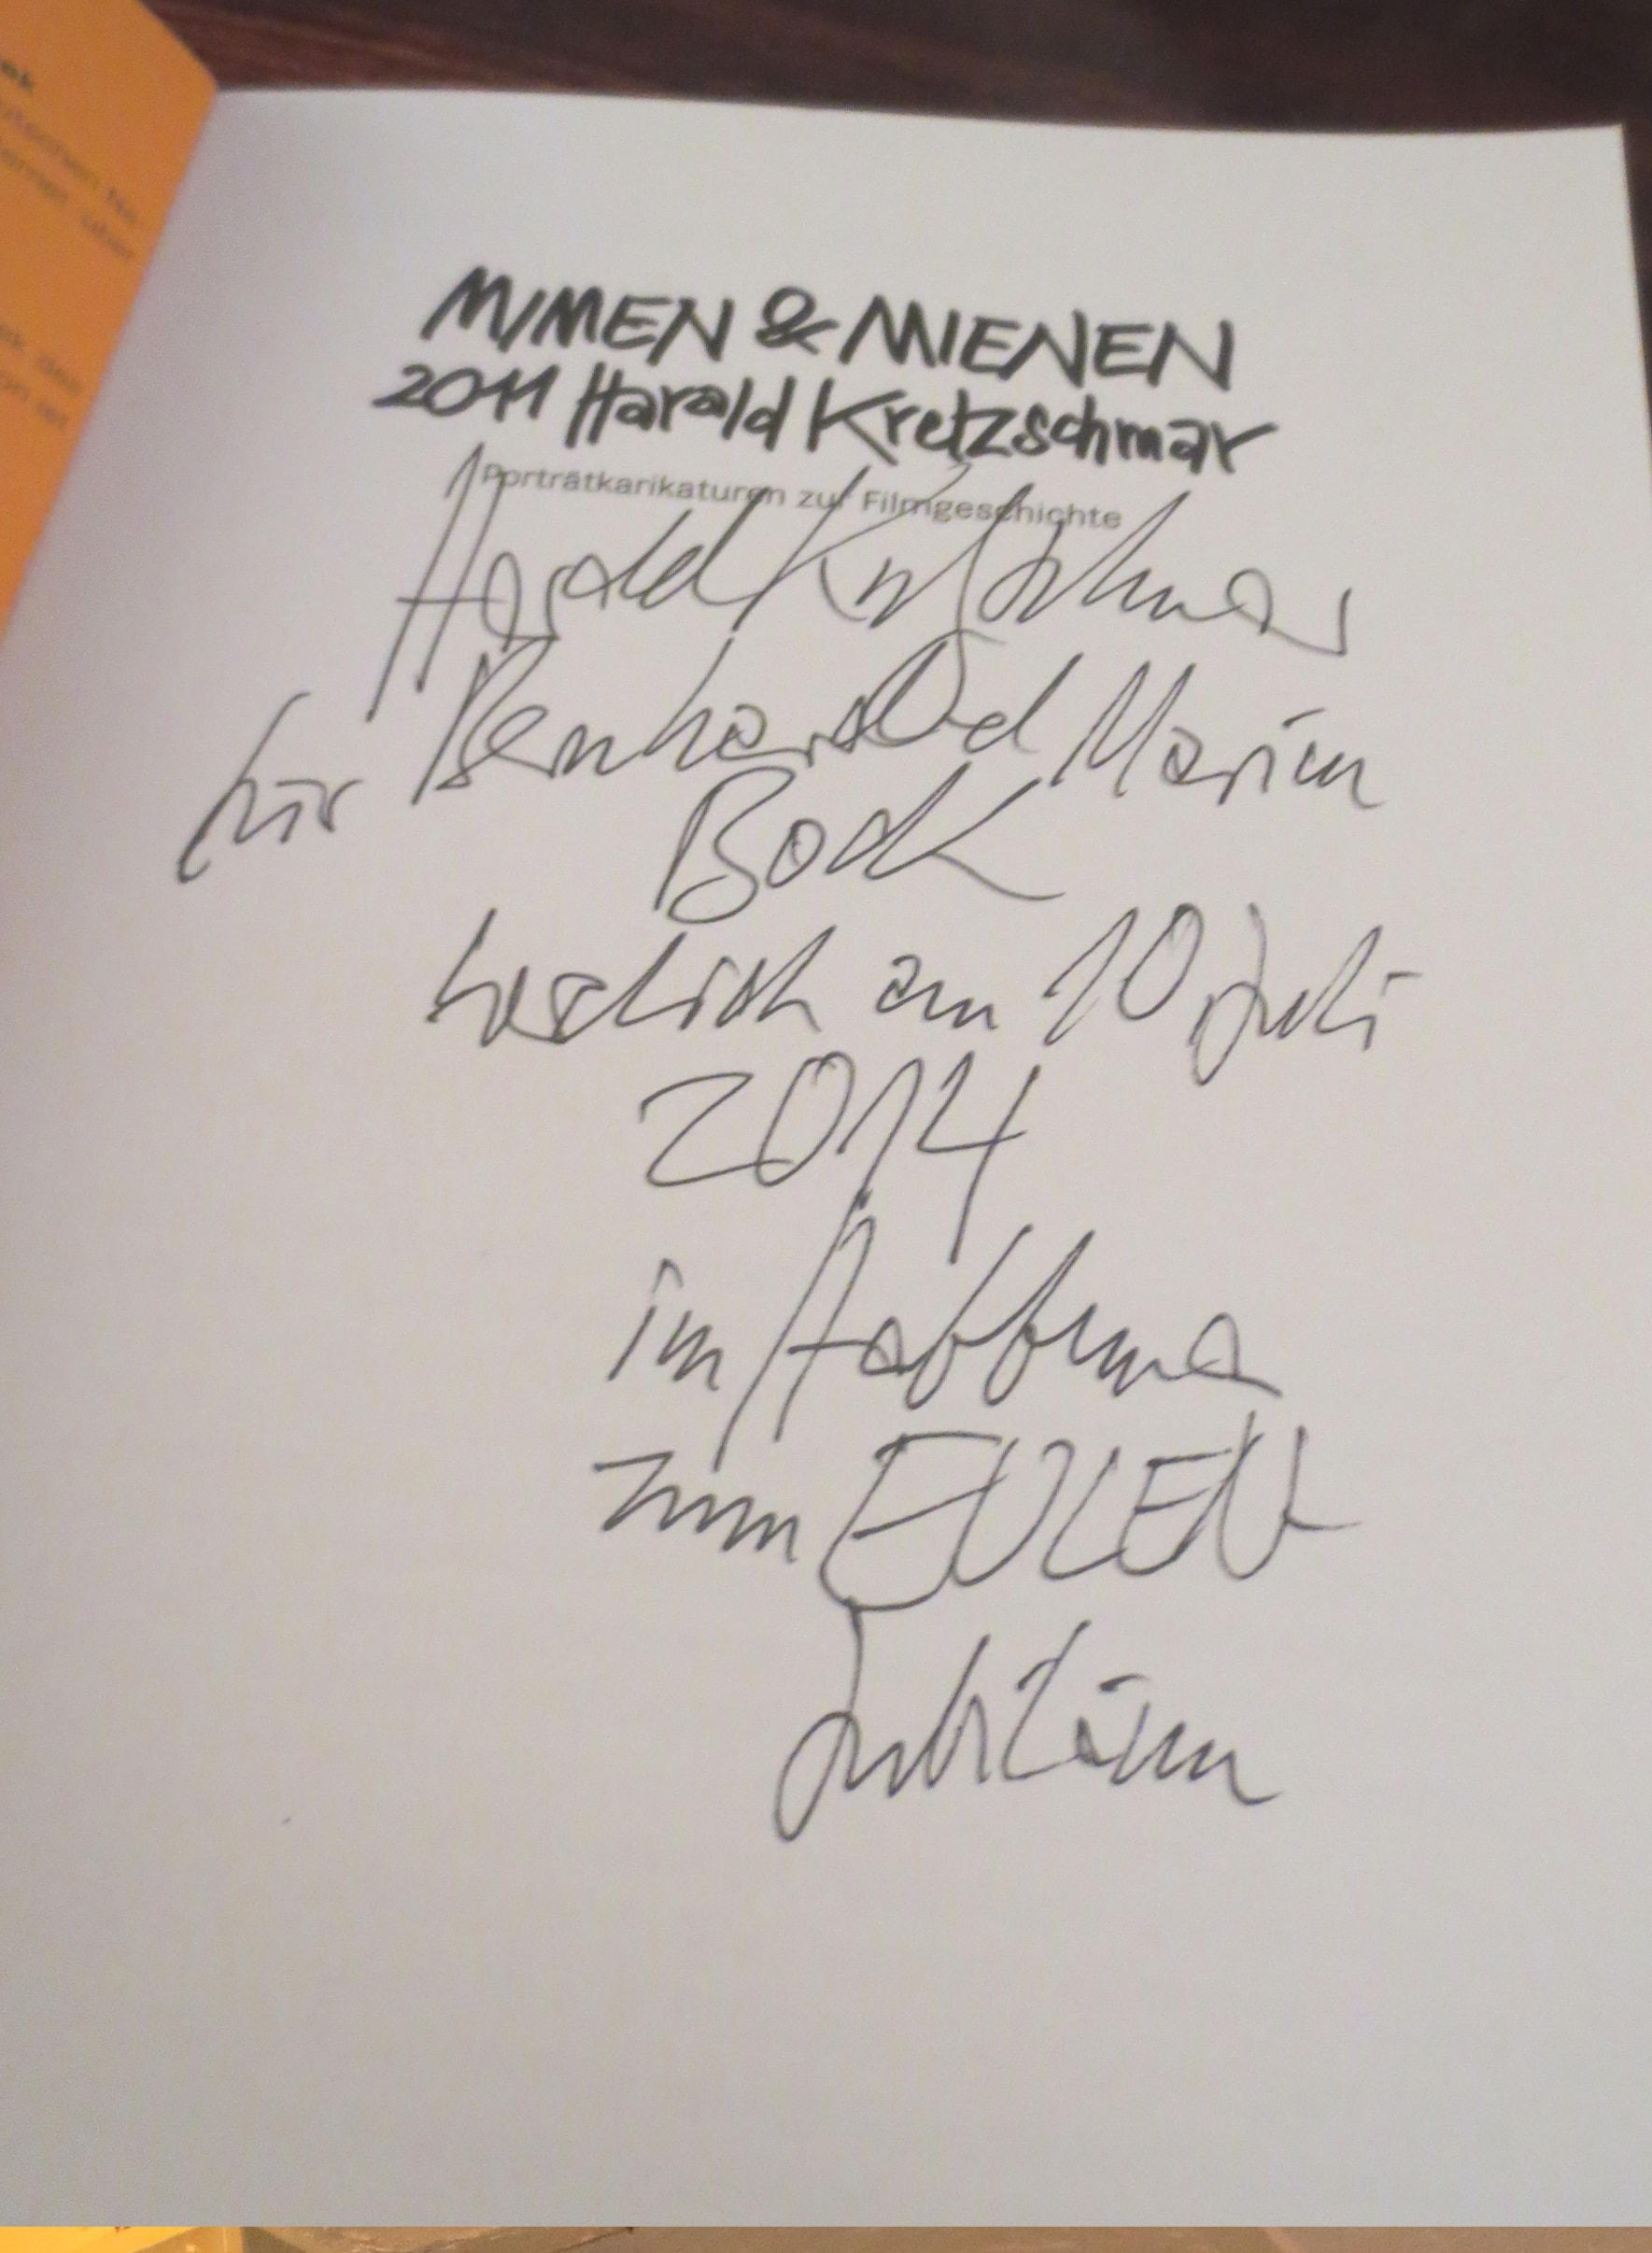 MIMEN & MIENEN
2011 Harald Kretzschmar
Porträtkarikaturen zur Filmgeschichte
Harald Kretzschmar
für
Bock
herzlich am 10 Juli
2014
im
zum EULEN
Jubiläum